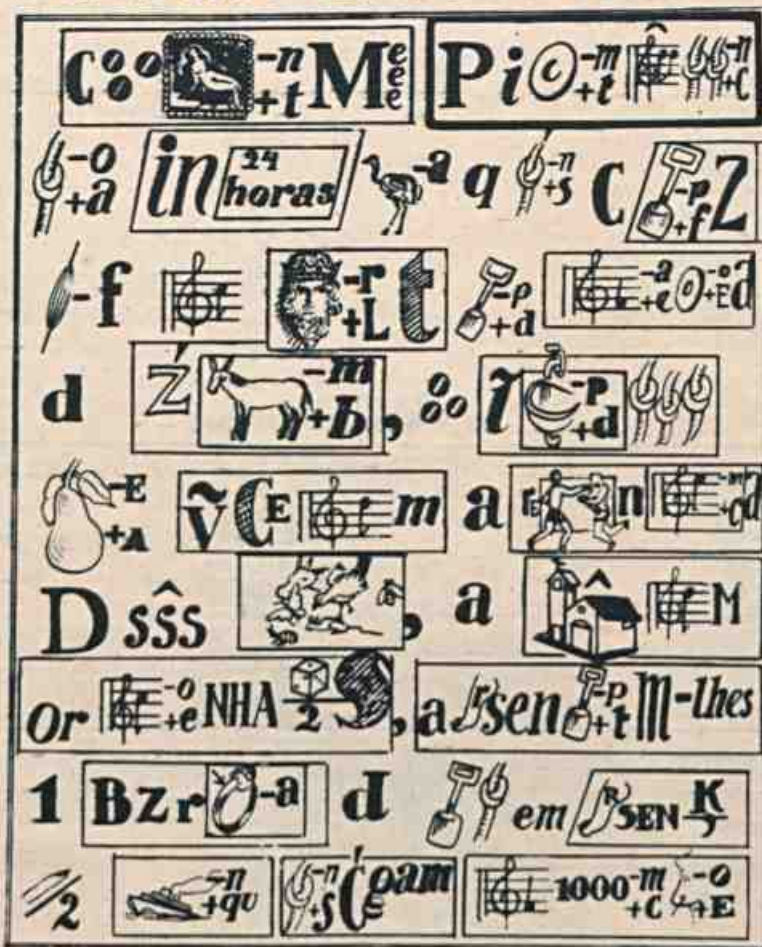 C -n +t M e e e P i c -m +t -n +c
-o +a in 24 horas -a q -n +s C -p +f Z
-f -r +L t -p +d -a +e -o +E d
d Ź -m +b , ĩ -p +d
-E +A Ṽ C E m a rE n -m +c d
D sŝs , a M
Or -o +e NHA 2 , a r sen -p +t m -lhes
1 B z r -a d em R SEN K ,
2 -n +qu -n +s Ć oam E 1000 -m +c -o +E